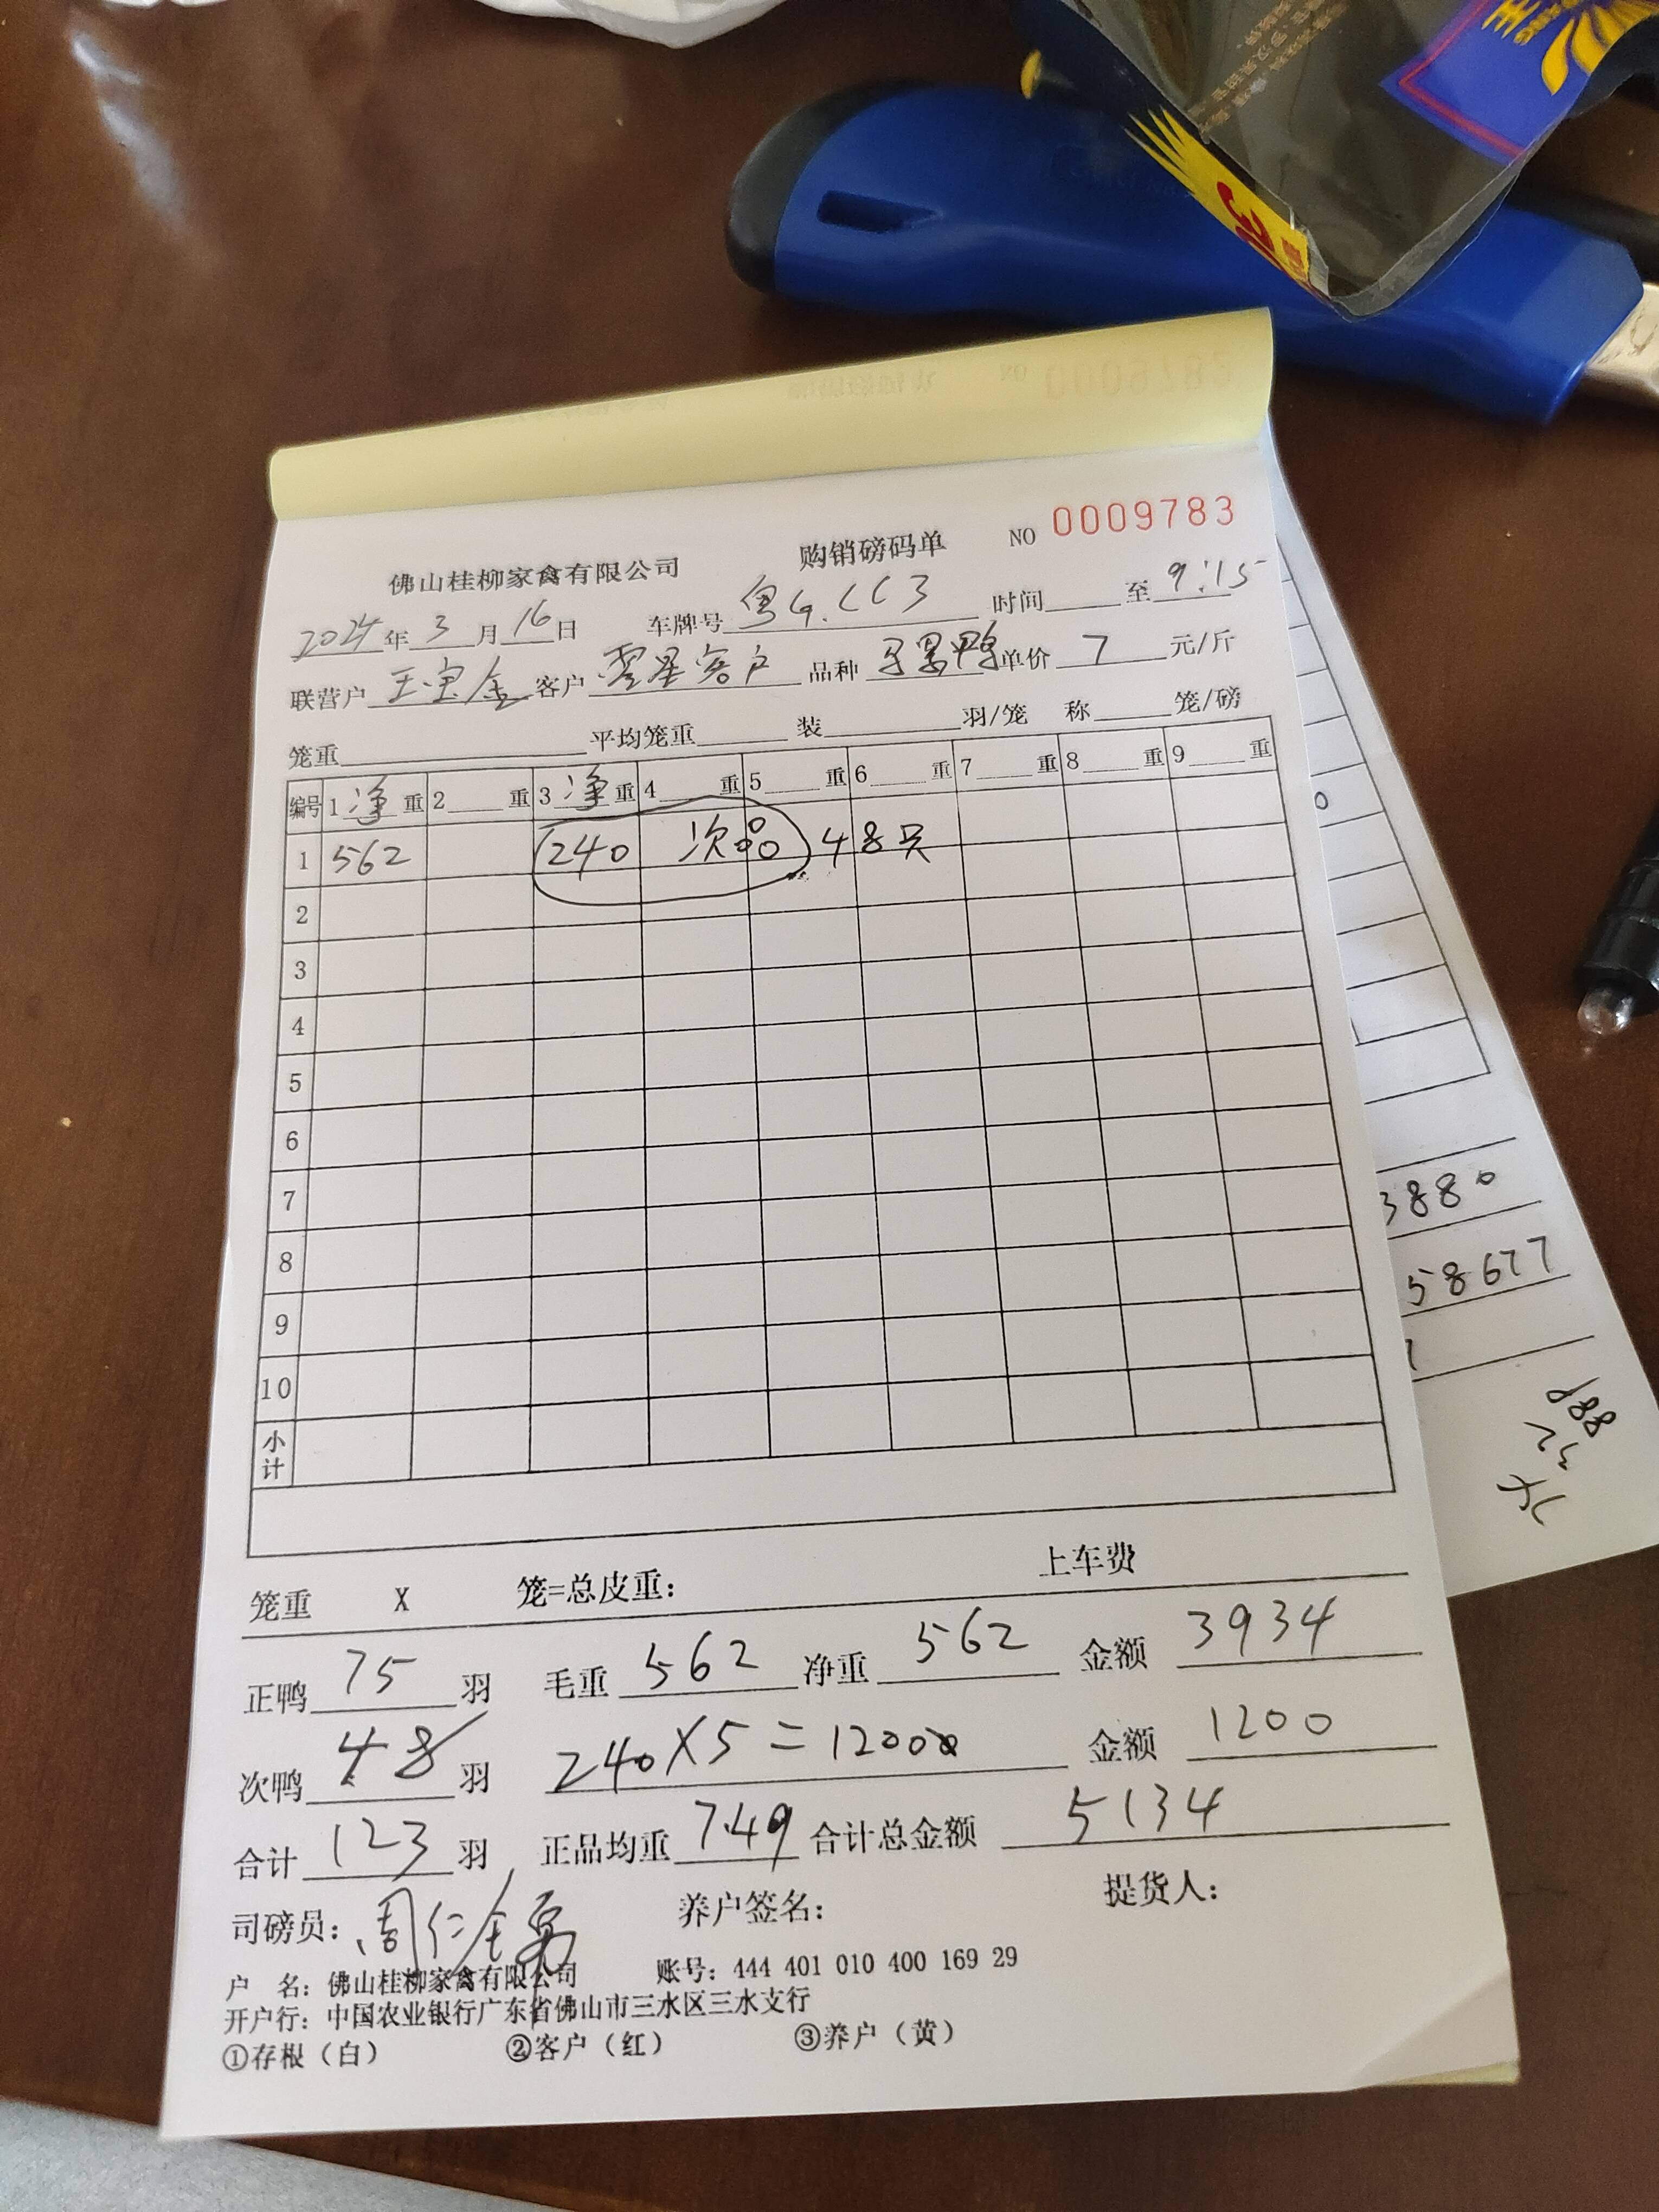 佛山桂柳家禽有限公司 购销磅码单 NO 0009783
2024年3月16日 车牌号 粤G.CC3 时间 至 9:15
联营户 王宝金 客户 零星客户 品种 单价 7 元/斤
笼重 平均笼重 装 羽/笼 称 笼/磅
编号 1净重 2重 3净重 4重 5重 6重 7重 8重 9重
1 562 240 次品 48只
2
3
4
5
6
7
8
9
10
小计
笼重 X 笼=总皮重: 上车费
正鸭 75 羽 毛重 562 净重 562 金额 3934
次鸭 48 羽 240×5=1200 金额 1200
合计 123 羽 正品均重 7.49 合计总金额 5134
司磅员: 周仁 养户签名: 提货人:
户 名: 佛山桂柳家禽有限公司 账号: 444 401 010 400 169 29
开户行: 中国农业银行广东省佛山市三水区三水支行
①存根（白） ②客户（红） ③养户（黄）
3880
58677